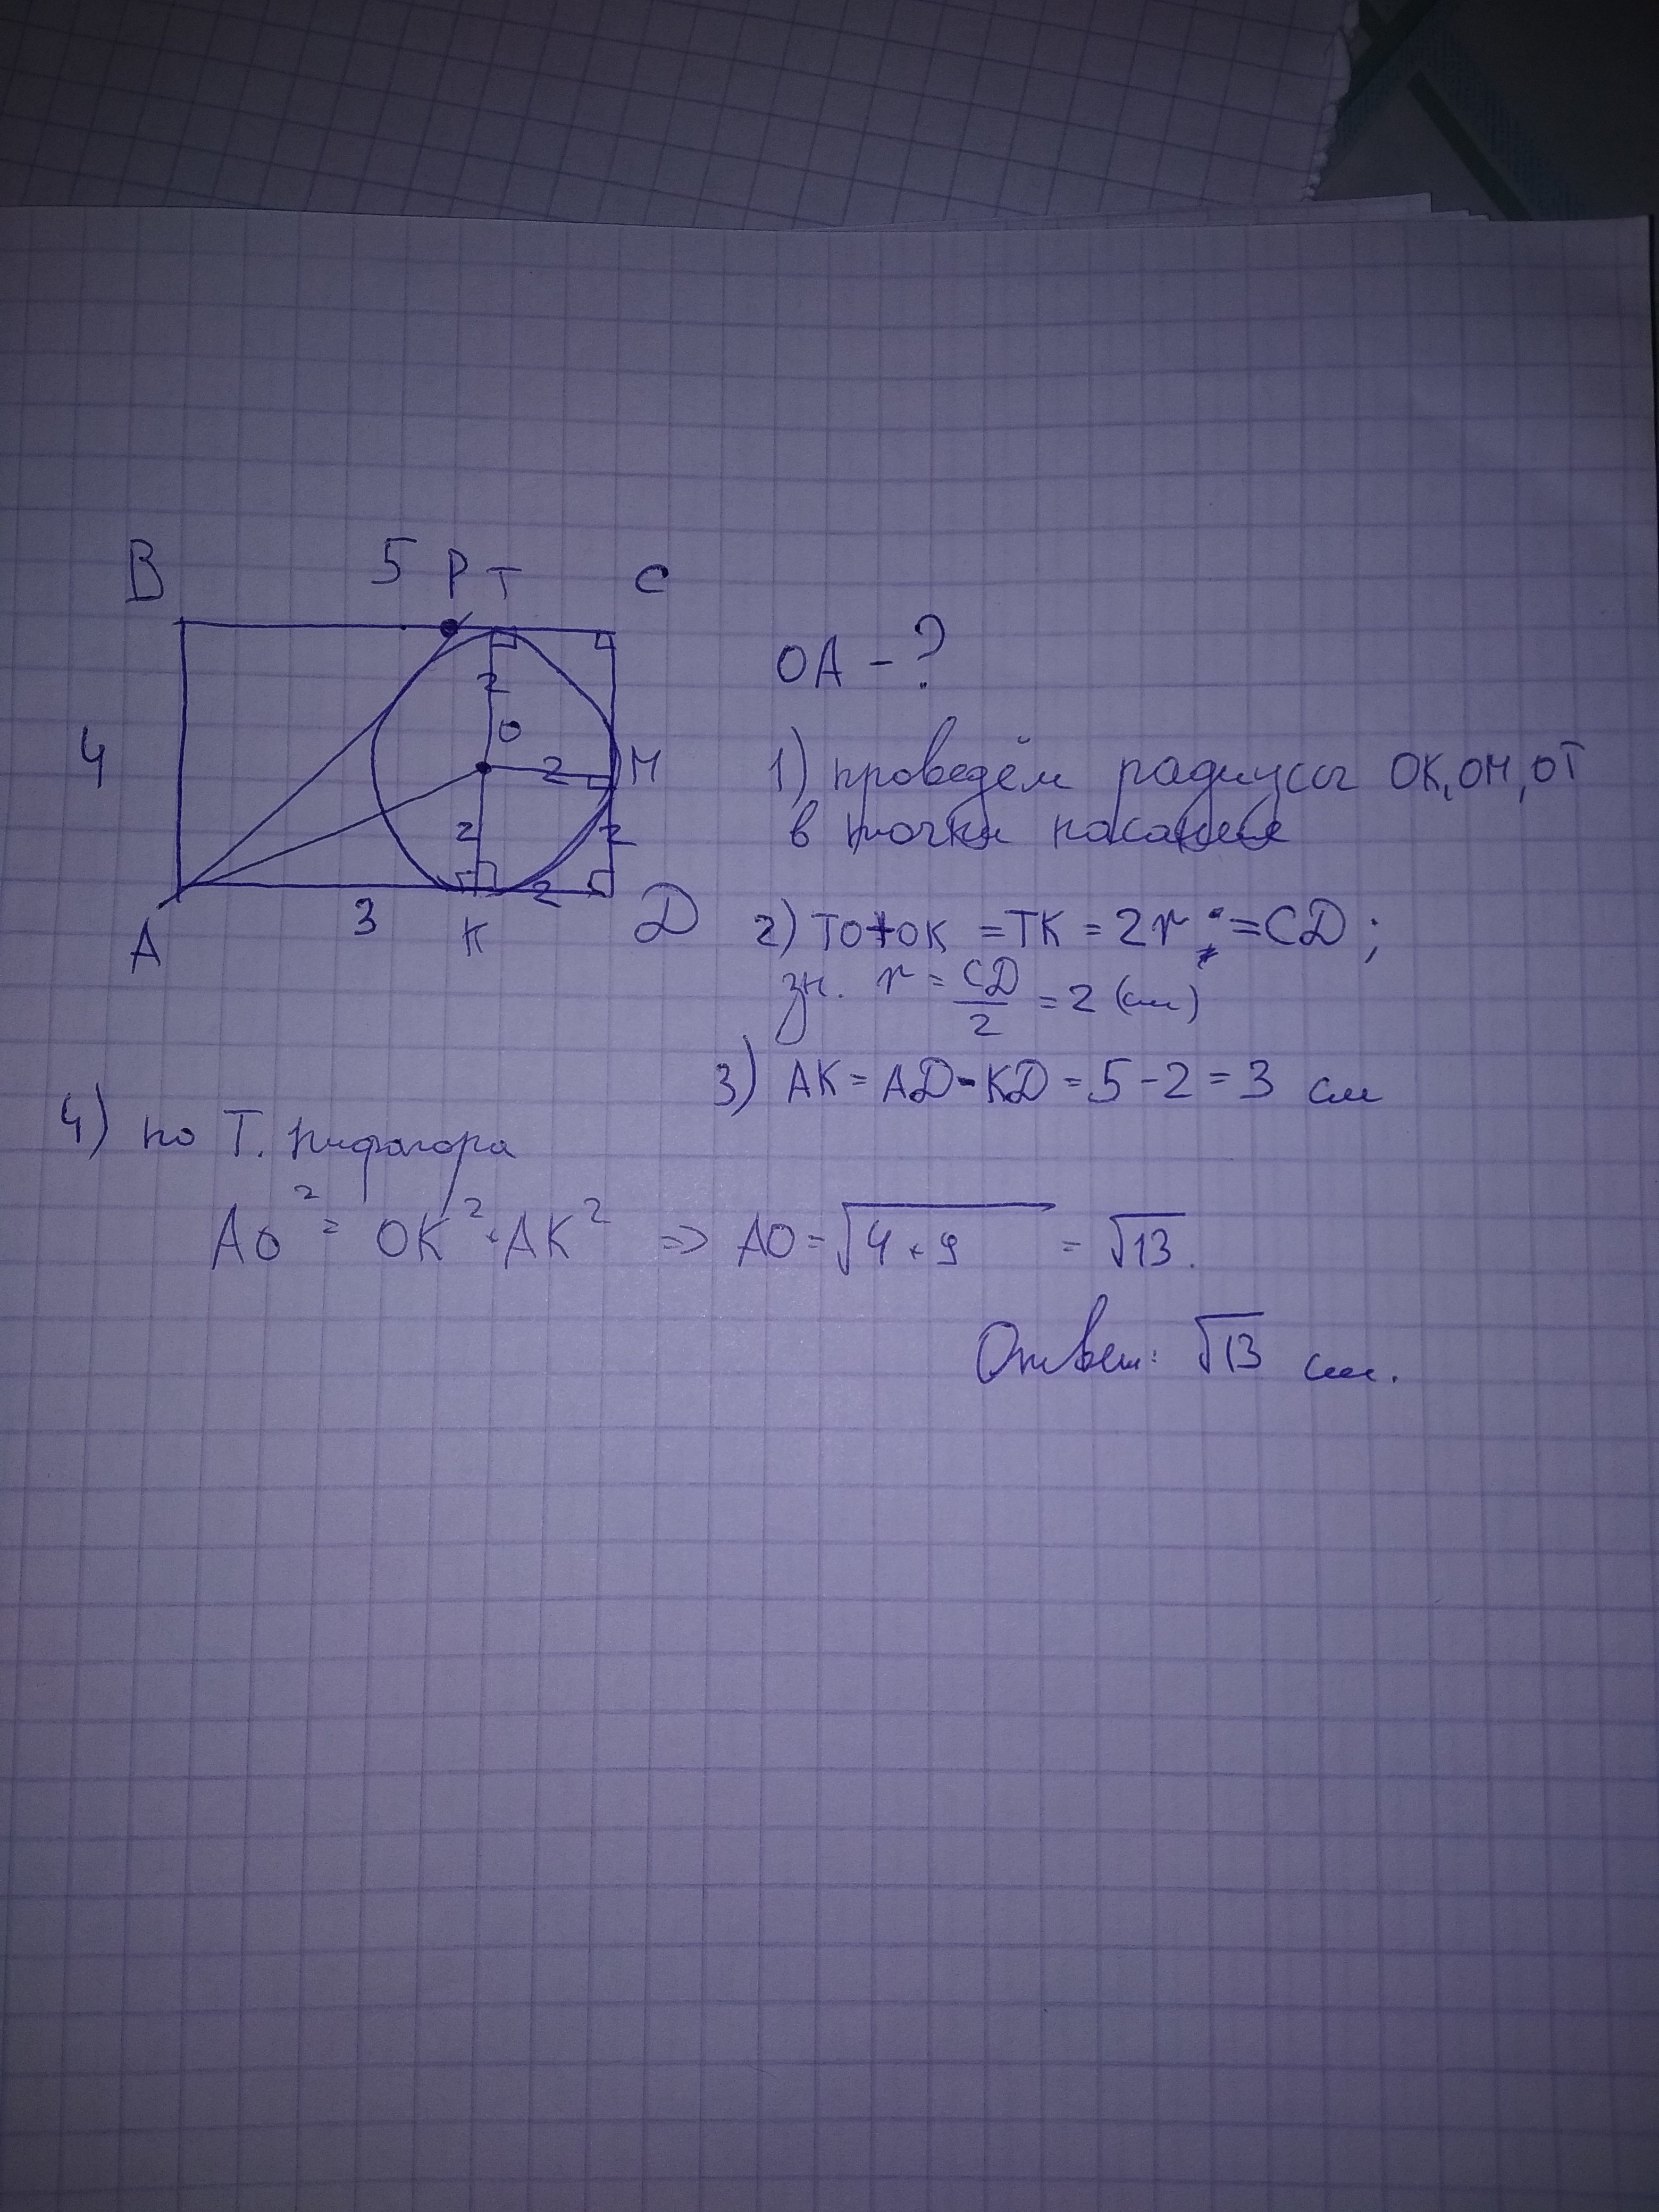 B 5 P T C
OA - ?
2
O
4 2 M
1) проведём радиусы OK, OM, OT
в точки касания
2 2
2
A 3 K D
2) TO+OK = TK = 2r = CD;
зн. r = CD/2 = 2 (см)
3) AK = AD - KD = 5 - 2 = 3 см
4) по Т. Пифагора
AO² = OK² + AK² => AO = √4+9 = √13.
Ответ: √13 см.